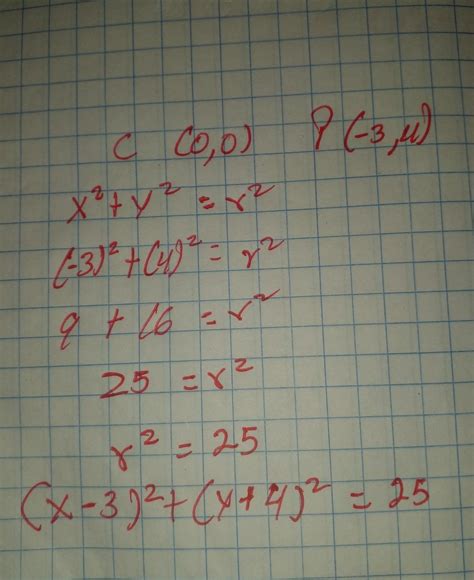 C (0,0) P (-3,4)
x² + y² = r²
(-3)² + (4)² = r²
9 + 16 = r²
25 = r²
r² = 25
(x-3)² + (y+4)² = 25